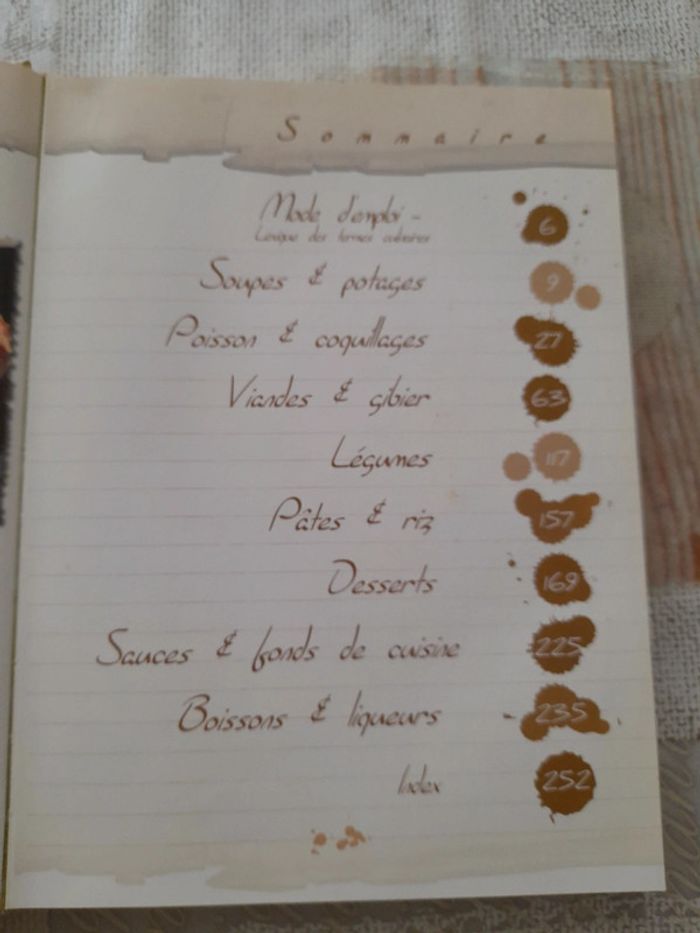 Sommaire
Mode d'emploi - 6
Lexique des termes culinaires
Soupes & potages 9
Poisson & coquillages 27
Viandes & gibier 63
Légumes 117
Pâtes & riz 157
Desserts 169
Sauces & fonds de cuisine 225
Boissons & liqueurs 235
Index 252